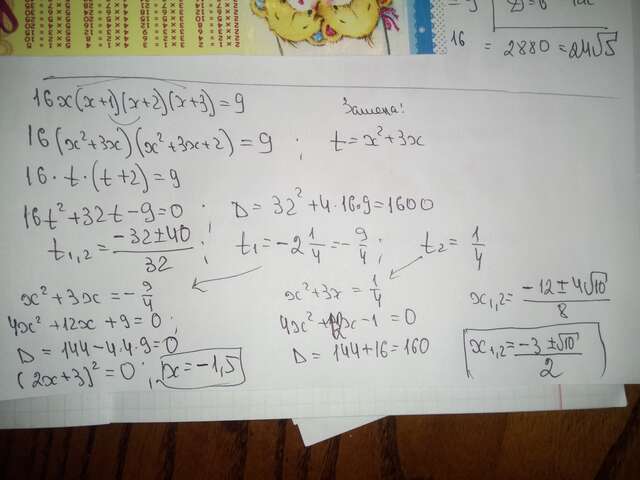 16 = 2880 = 24√5
16x(x+1)(x+2)(x+3)=9
Замена!
16(x²+3x)(x²+3x+2)=9 ; t=x²+3x
16·t·(t+2)=9
16t²+32t-9=0 ; D=32²+4·16·9=1600
t₁,₂ = (-32±40)/32 ; t₁=-2 1/4=-9/4 ; t₂=1/4
x²+3x=-9/4
4x²+12x+9=0 ;
D=144-4·4·9=0
(2x+3)²=0 ; x=-1,5
x²+3x=1/4
4x²+12x-1=0
D=144+16=160
x₁,₂=(-12±4√10)/8
x₁,₂=(-3±√10)/2